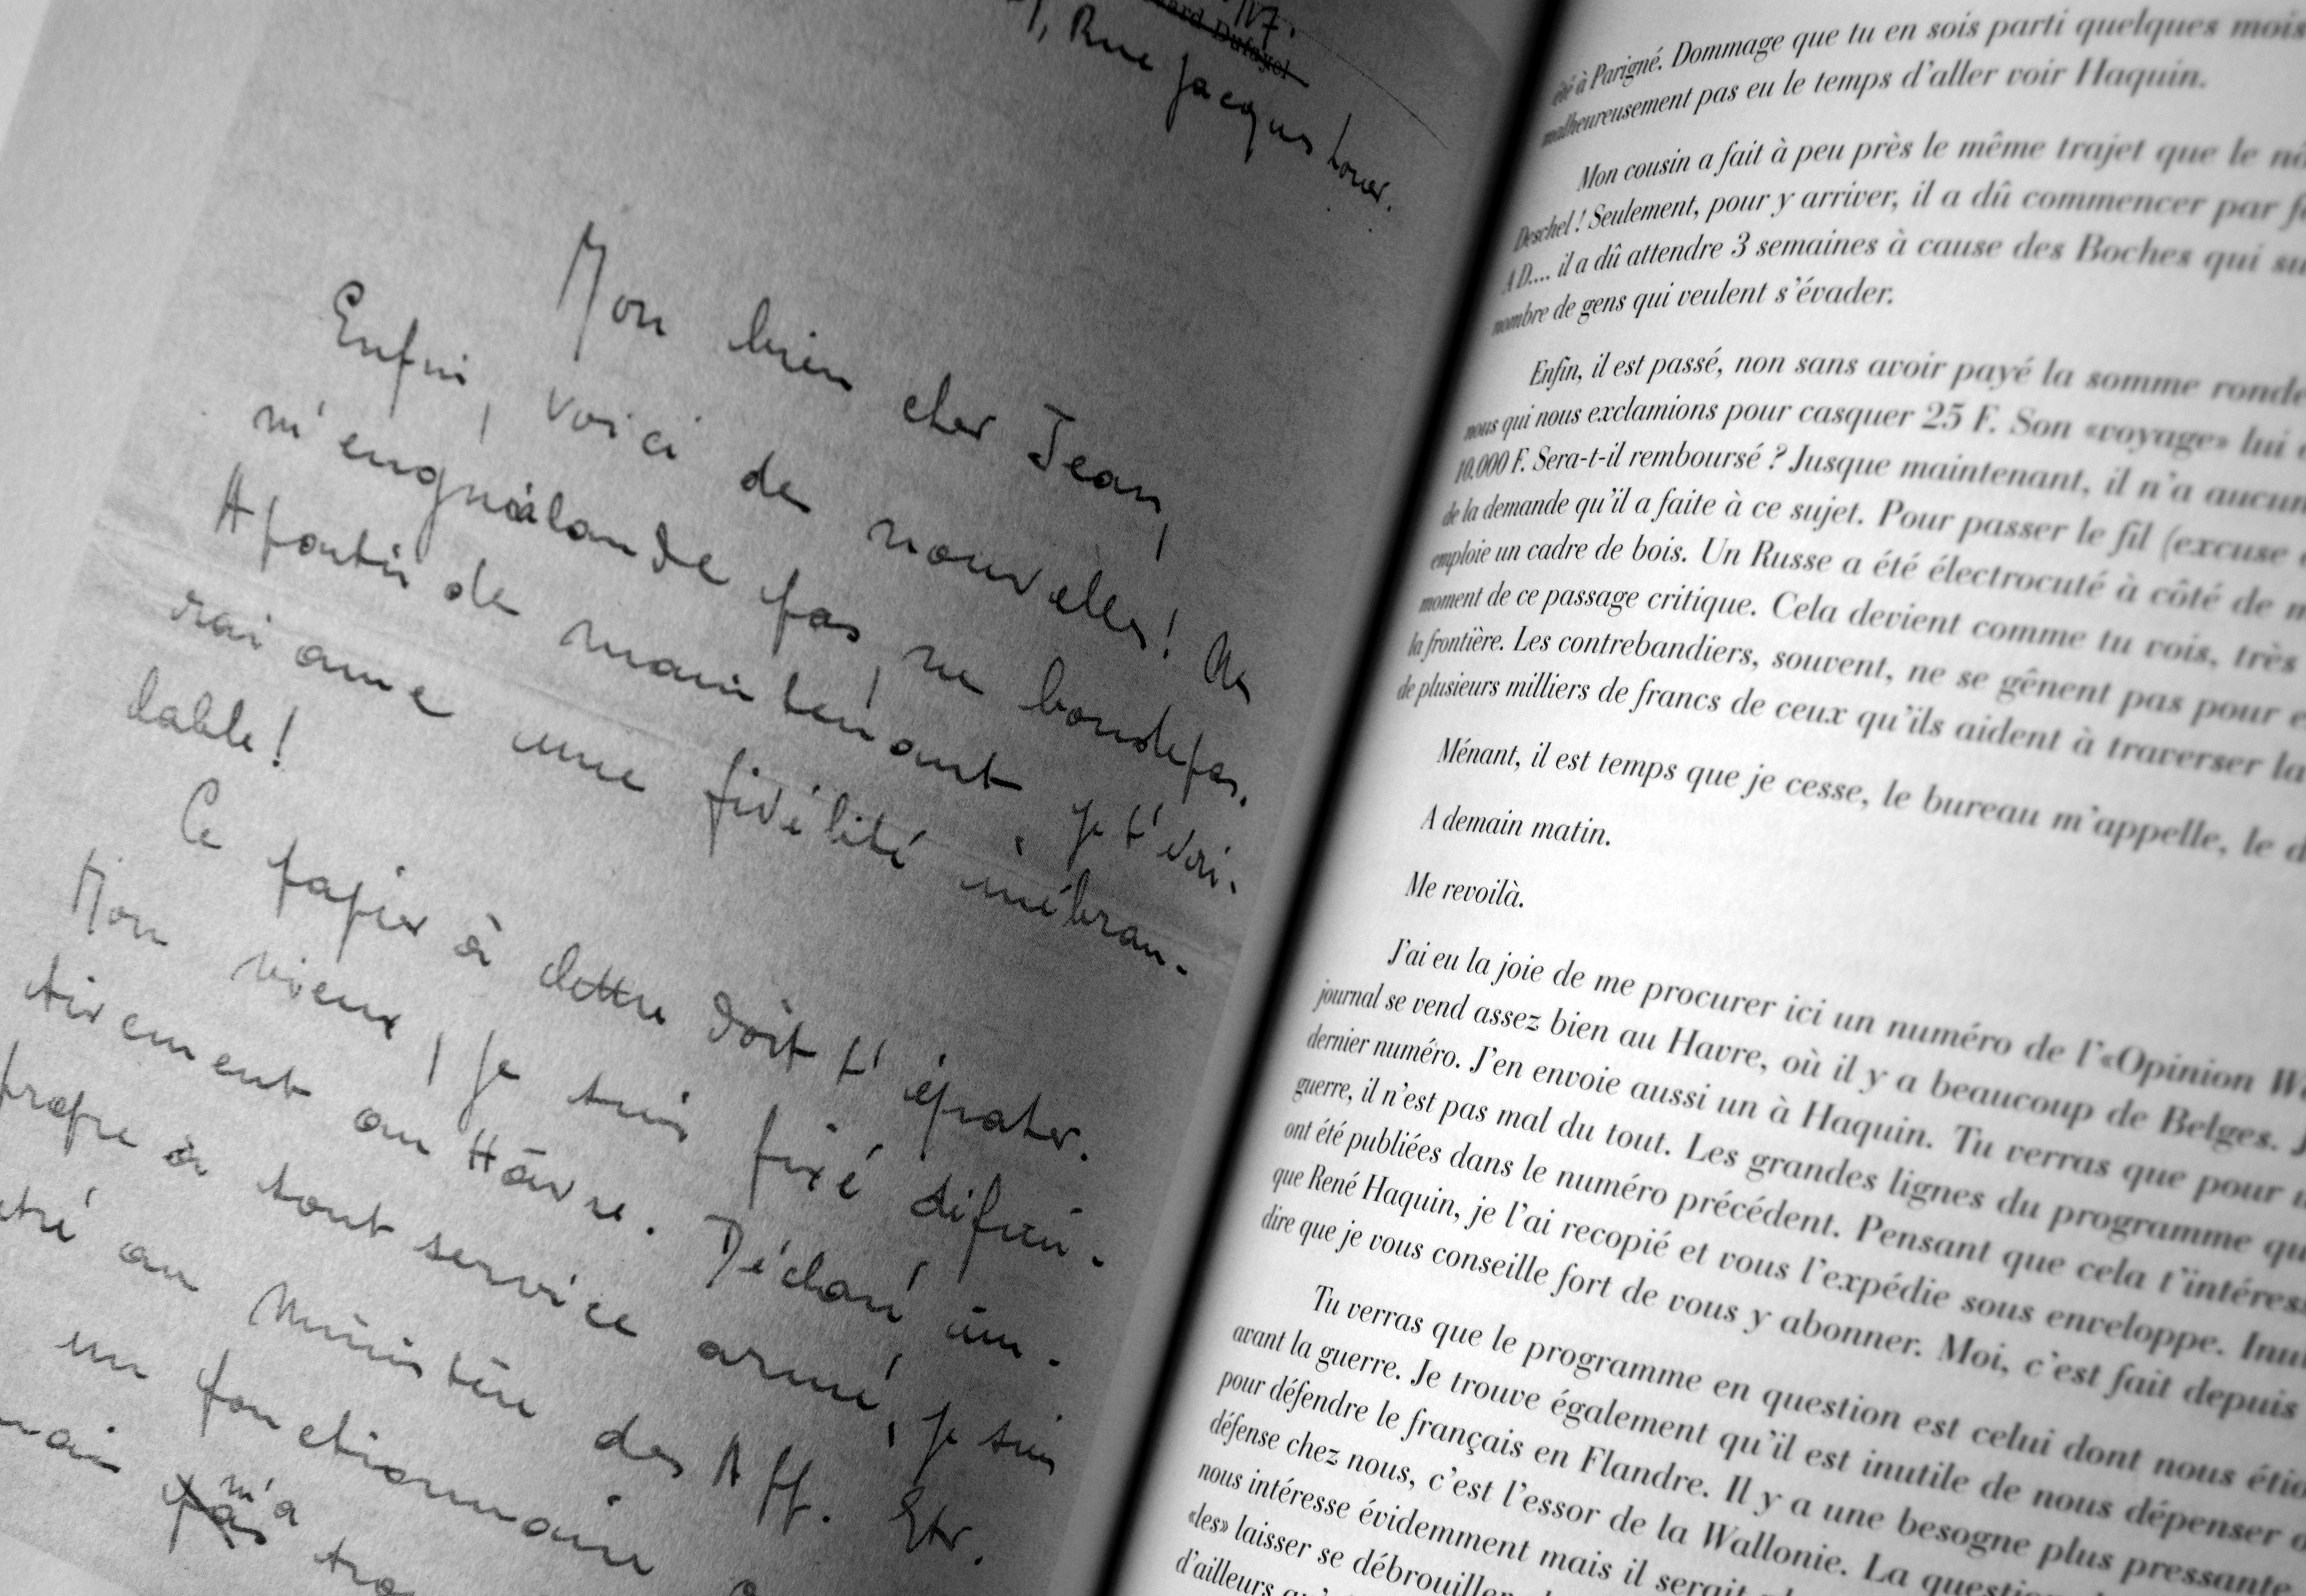 117.
Rue Jacques Louer.
Mon bien cher Jean,
Enfin, voici de nouvelles! Ne
m'enguirlande pas, ne boude pas.
A partir de maintenant je t'écri-
rai avec une fidélité inébran-
lable!
Ce papier à lettre doit t'épater.
Mon vieux, je suis fixé défini-
tivement au Hâvre. Déclaré im-
propre à tout service armé, je suis
au Ministère des Aff. Etr.
un fonctionnaire
m'a
été à Parigné. Dommage que tu en sois parti quelques mois
malheureusement pas eu le temps d'aller voir Haquin.
Mon cousin a fait à peu près le même trajet que le
Deschel ! Seulement, pour y arriver, il a dû commencer par
A D.... il a dû attendre 3 semaines à cause des Boches qui
nombre de gens qui veulent s'évader.
Enfin, il est passé, non sans avoir payé la somme ronde
nous qui nous exclamions pour casquer 25 F. Son «voyage» lui
10.000 F. Sera-t-il remboursé ? Jusque maintenant, il n'a aucun
de la demande qu'il a faite à ce sujet. Pour passer le fil (excuse
emploie un cadre de bois. Un Russe a été électrocuté à côté de
moment de ce passage critique. Cela devient comme tu vois, très
la frontière. Les contrebandiers, souvent, ne se gênent pas pour
de plusieurs milliers de francs de ceux qu'ils aident à traverser la
Ménant, il est temps que je cesse, le bureau m'appelle, le
A demain matin.
Me revoilà.
J'ai eu la joie de me procurer ici un numéro de l'«Opinion
journal se vend assez bien au Havre, où il y a beaucoup de Belges.
dernier numéro. J'en envoie aussi un à Haquin. Tu verras que pour
guerre, il n'est pas mal du tout. Les grandes lignes du programme
ont été publiées dans le numéro précédent. Pensant que cela
que René Haquin, je l'ai recopié et vous l'expédie sous enveloppe.
dire que je vous conseille fort de vous y abonner. Moi, c'est fait depuis
Tu verras que le programme en question est celui dont nous
avant la guerre. Je trouve également qu'il est inutile de nous dépenser
pour défendre le français en Flandre. Il y a une besogne plus pressante
défense chez nous, c'est l'essor de la Wallonie. La
nous intéresse évidemment mais il serait
«les» laisser se débrouiller
d'ailleurs